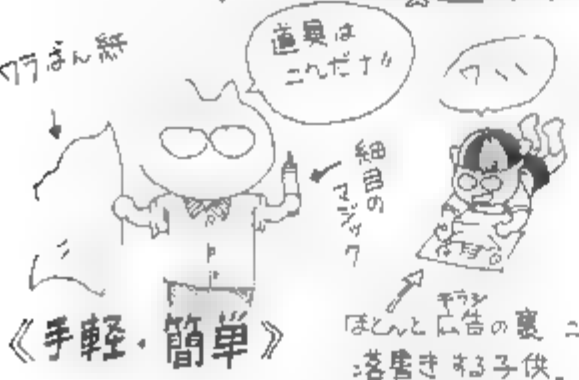 ワラばん紙
道具は
これだけ!!
ワハハ
細目の
マジック
《手軽・簡単》
チラシ
ほとんど広告の裏に
落書きする子供。